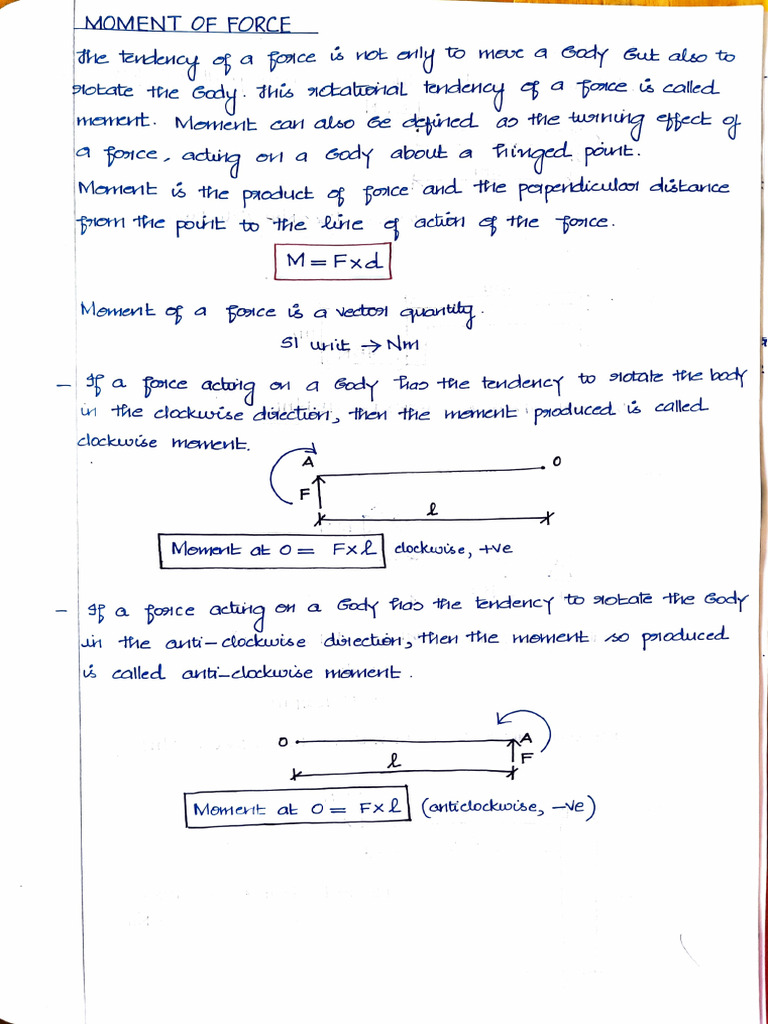 MOMENT OF FORCE
The tendency of a force is not only to move a body but also to
rotate the body. This rotational tendency of a force is called
moment. Moment can also be defined as the turning effect of
a force, acting on a body about a hinged point.
Moment is the product of force and the perpendicular distance
from the point to the line of action of the force.
M = F × d
Moment of a force is a vector quantity.
SI unit → Nm
- If a force acting on a body has the tendency to rotate the body
in the clockwise direction, then the moment produced is called
clockwise moment.
A O
F
l
Moment at O = F × l clockwise, +ve
- If a force acting on a body has the tendency to rotate the body
in the anti-clockwise direction, then the moment so produced
is called anti-clockwise moment.
O A
F
l
Moment at O = F × l (anticlockwise, -ve)